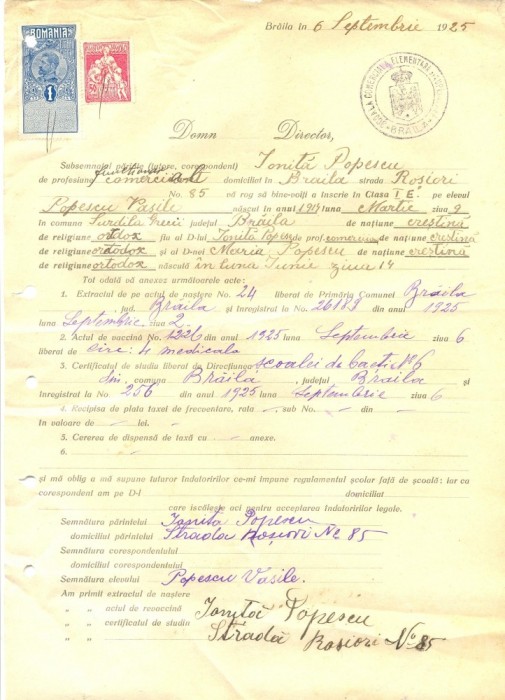 Brăila în 6 Septembrie 1925
ROMANIA
1
ȘCOALA COMERCIALĂ ELEMENTARĂ
BRĂILA
Domn Director,
Subsemnatul părinte (tutore, corespondent) Ioniță Popescu
de profesiune comerciant domiciliat în Braila strada Roșiori
No. 85 vă rog să bine-voiți a înscrie în Clasa I E. pe elevul
Popescu Vasile născut în anul 1914 luna Martie ziua 9
în comuna Surdila Greci județul Brăila de națiune creștină
de religiune ortodox fiu al D-lui Ioniță Popescu de prof. comerciant de națiune creștină
de religiune ortodox și al D-nei Maria Popescu de națiune creștina
de religiune ortodox născulă in luna Iunie ziua 14
Tot odată vă anexez următoarele acte:
1. Extractul de pe actul de naștere No. 24 liberat de Primăria Comunei Brăila
jud. Brăila și înregistrat la No. 26189 din anul 1925
luna Septembrie ziua 2.
2. Actul de vaccină No. 1226 din anul 1925 luna Septembrie ziua 6
liberat de circ: 4 medicala
3. Certificatul de studiu liberat de Direcțiunea școalei de baeti No 6
din, comuna Brăila, județul Brăila și
înregistrat la No. 256 din anul 1925 luna Septembrie ziua 6
4. Recipisa de plata taxei de frecuentare, rata — sub No. — din
în valoare de — lei. —
5. Cererea de dispensă de taxă cu — anexe.
6. —
și mă oblig a mă supune tuturor îndatoririlor ce-mi impune regulamentul școlar față de școală: iar cu
corespondent am pe D-l domiciliat
care iscălește aci pentru acceptarea îndatoririlor legale.
Semnătura părintelui Ioniță Popescu
domiciliul părintelui Strada Roșiori No 85
Semnătura corespondentului
domiciliul corespondentului
Semnătura elevului Popescu Vasile.
Am primit extractul de naștere
„ „ actul de revaccină Ioniță Popescu
„ „ certificatul de studiu Stradă Roșiori No 85